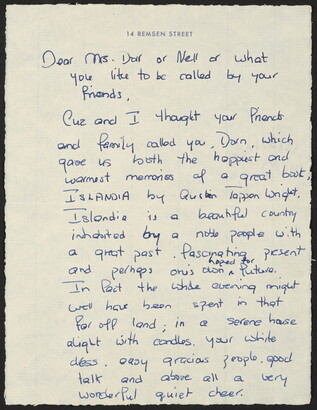 14 REMSEN STREET
Dear Mrs. Dor or Nell or what
you like to be called by your
friends,
Cuz and I thought your friends
and family called you, Dorn, which
gave us both the happiest and
warmest memories of a great book,
ISLANDIA by Austin Tappan Wright.
Islandia is a beautiful country
inhabited by a noble people with
a great past. fascinating present
and perhaps one's own hoped for future.
In fact the whole evening might
well have been spent in that
far off land; in a serene house
alight with candles. your white
dress. easy gracious people. good
talk and above all a very
wonderful quiet cheer.